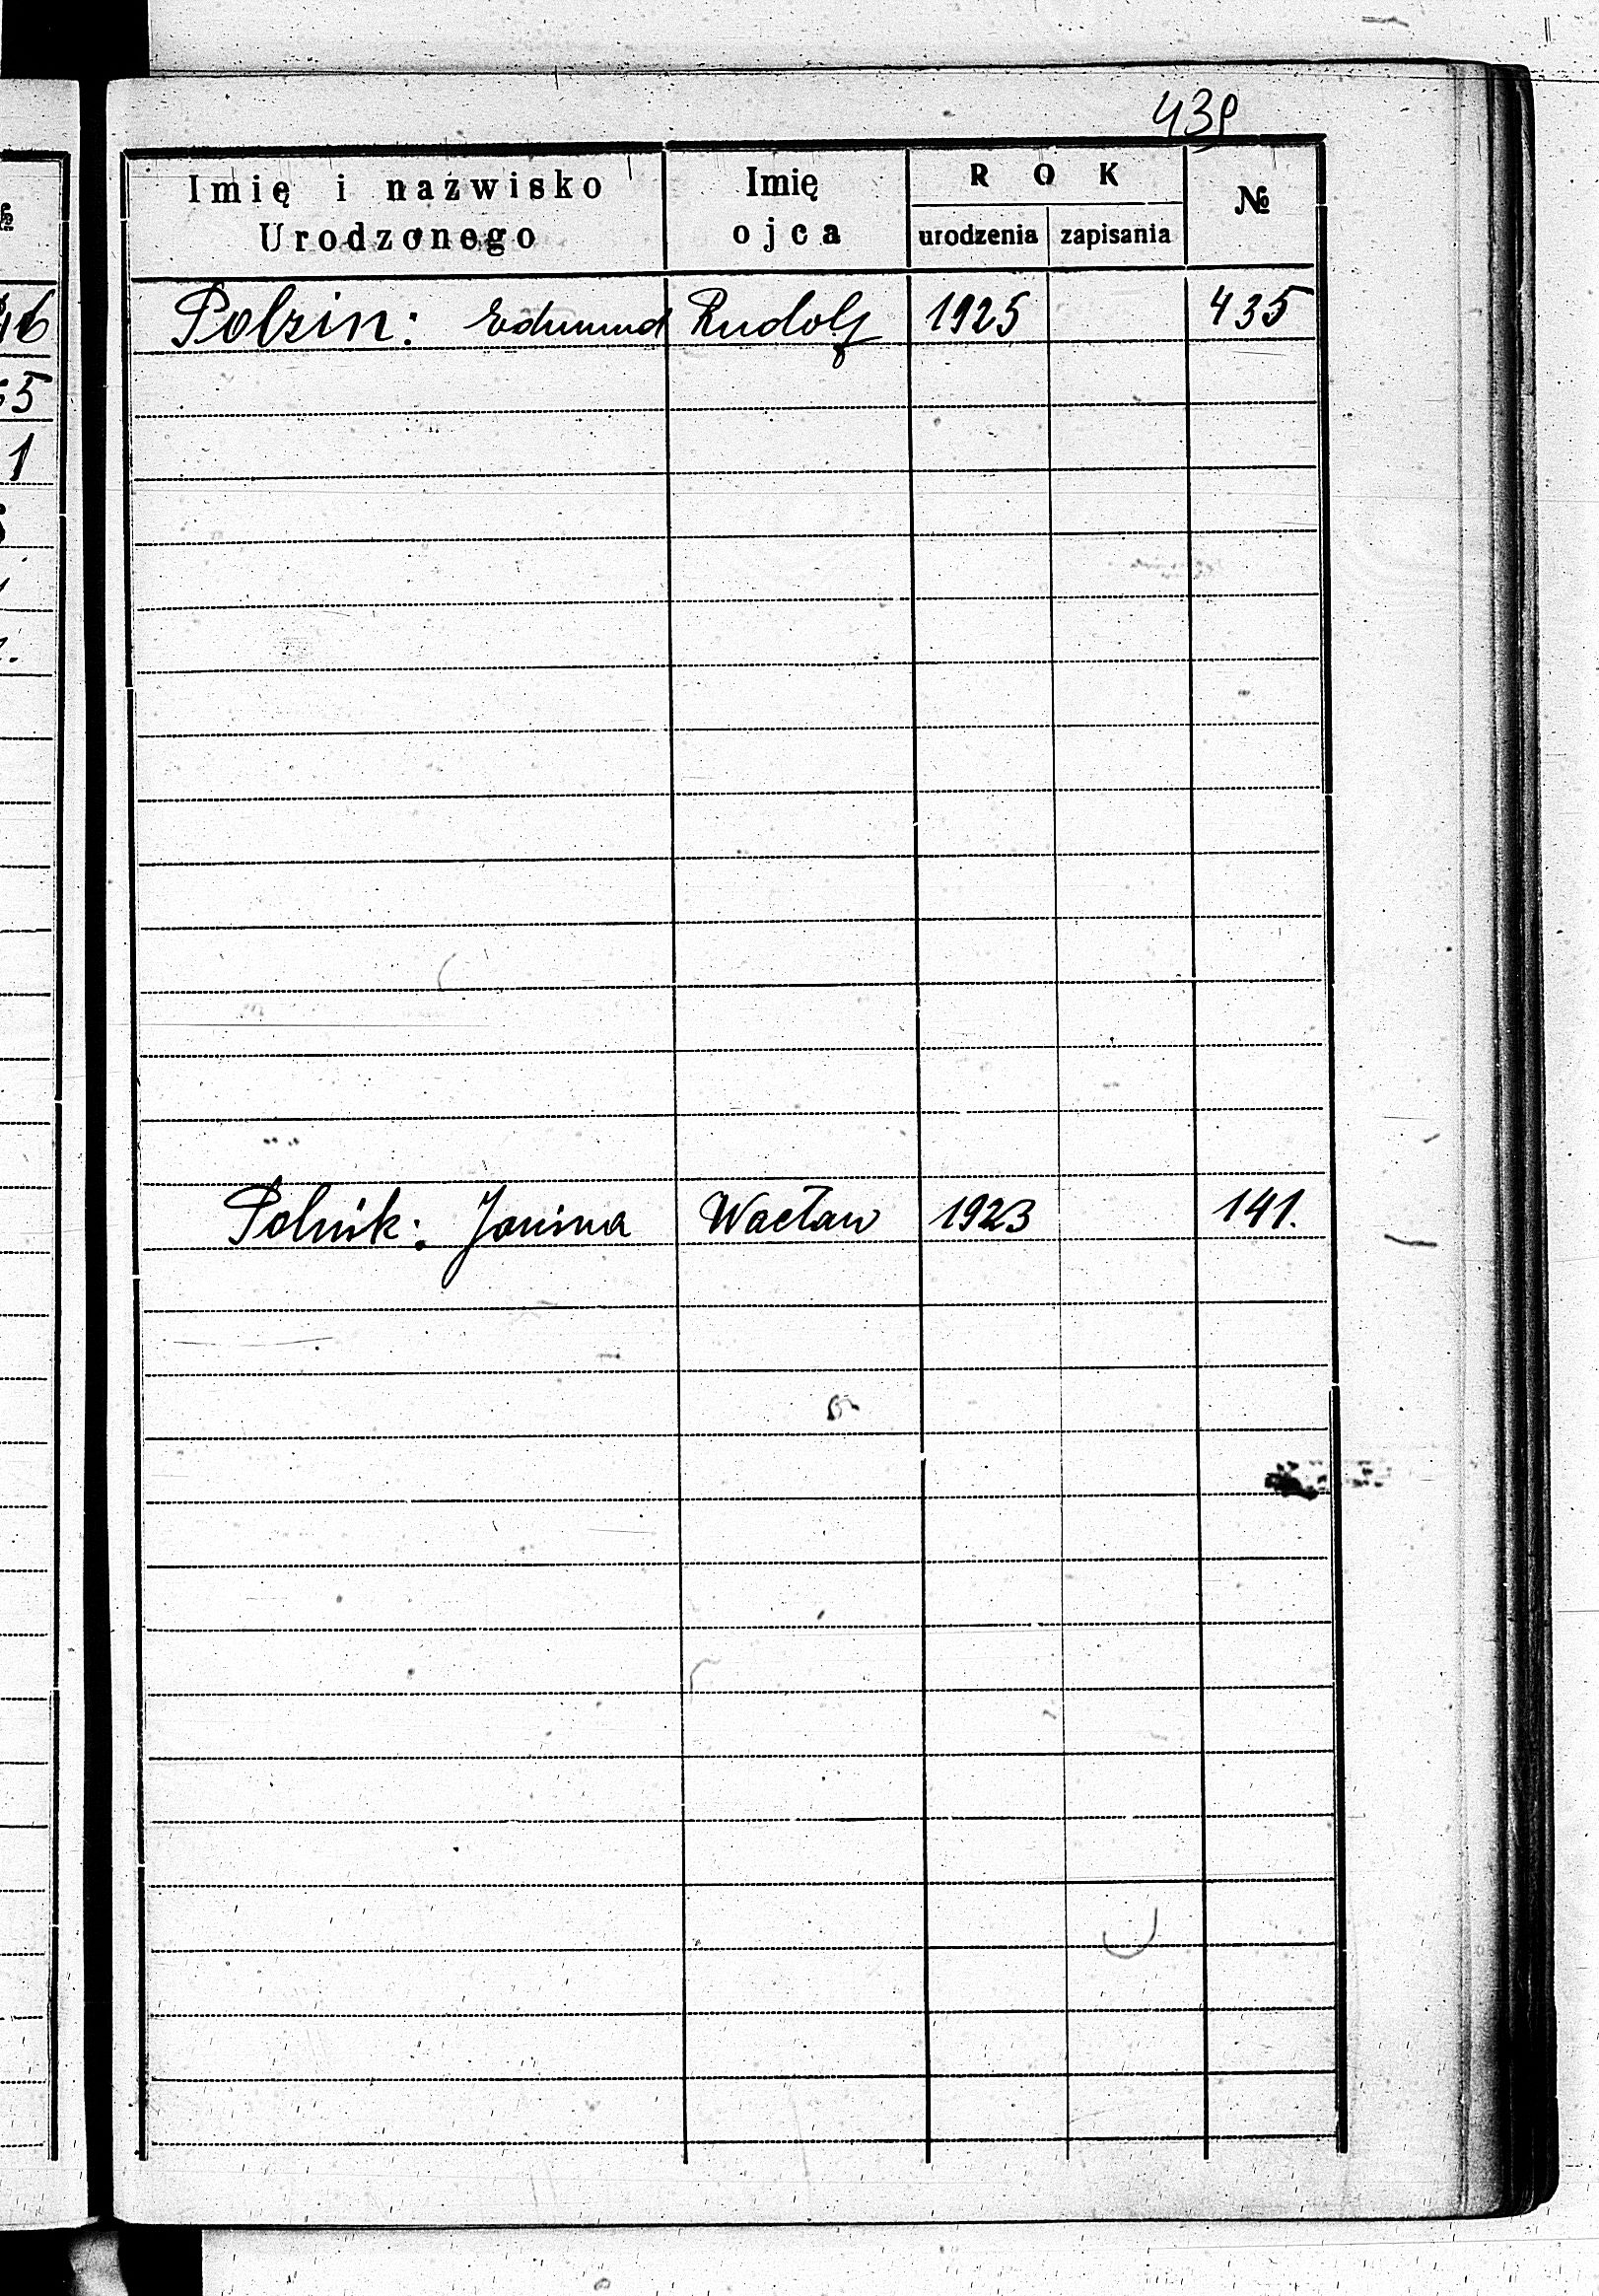 439
Imię i nazwisko Urodzonego Imię ojca ROK urodzenia zapisania №
Polzin: Edmund Rudolf 1925 435
Polnik: Janina Wacław 1923 141.
46
5
1